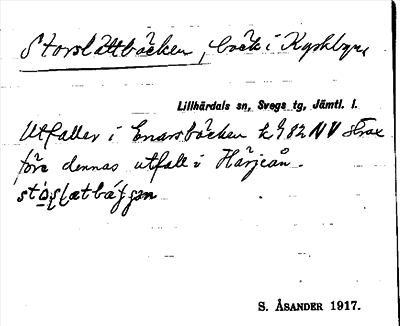 Storslåttbäcken, bäck i Kyrkbyn,
Lillhärdals sn, Svegs tg, Jämtl. l.
Utfaller i Enarsbäcken k 982 NV strax
före dennas utfall i Härjeån.
S. ÅSANDER 1917.